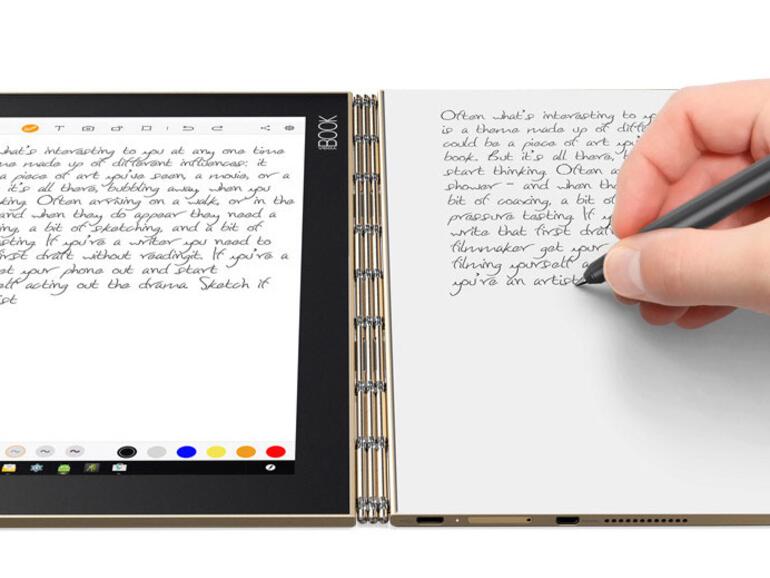 T
YOGA BOOK
what's interesting to you at any one time
me made up of different influences: it
a piece of art you've seen, a movie, or a
it's all there, bubbling away when you
king. Often arriving on a walk, or in the
and when they do appear they need a
ing, a bit of sketching, and a bit of
sting If you're a writer you need to
irst draft without readingit. If you're a
et your phone out and start
elf acting out the drama. Sketch it
st
Often what's interesting to yo
is a theme made up of diffe
could be a piece of art you'
book. But it's all there, b
start thinking. Often a
shower - and when the
bit of coaxing, a bit of
pressure testing If y
write that first draf
filmmaker get your
filming yourself a
you're an artist